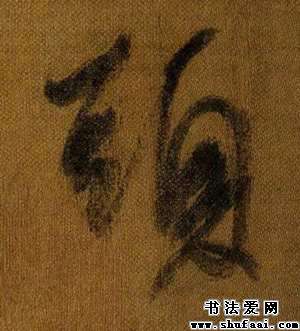 頭
书法爱网
www.shufaai.com